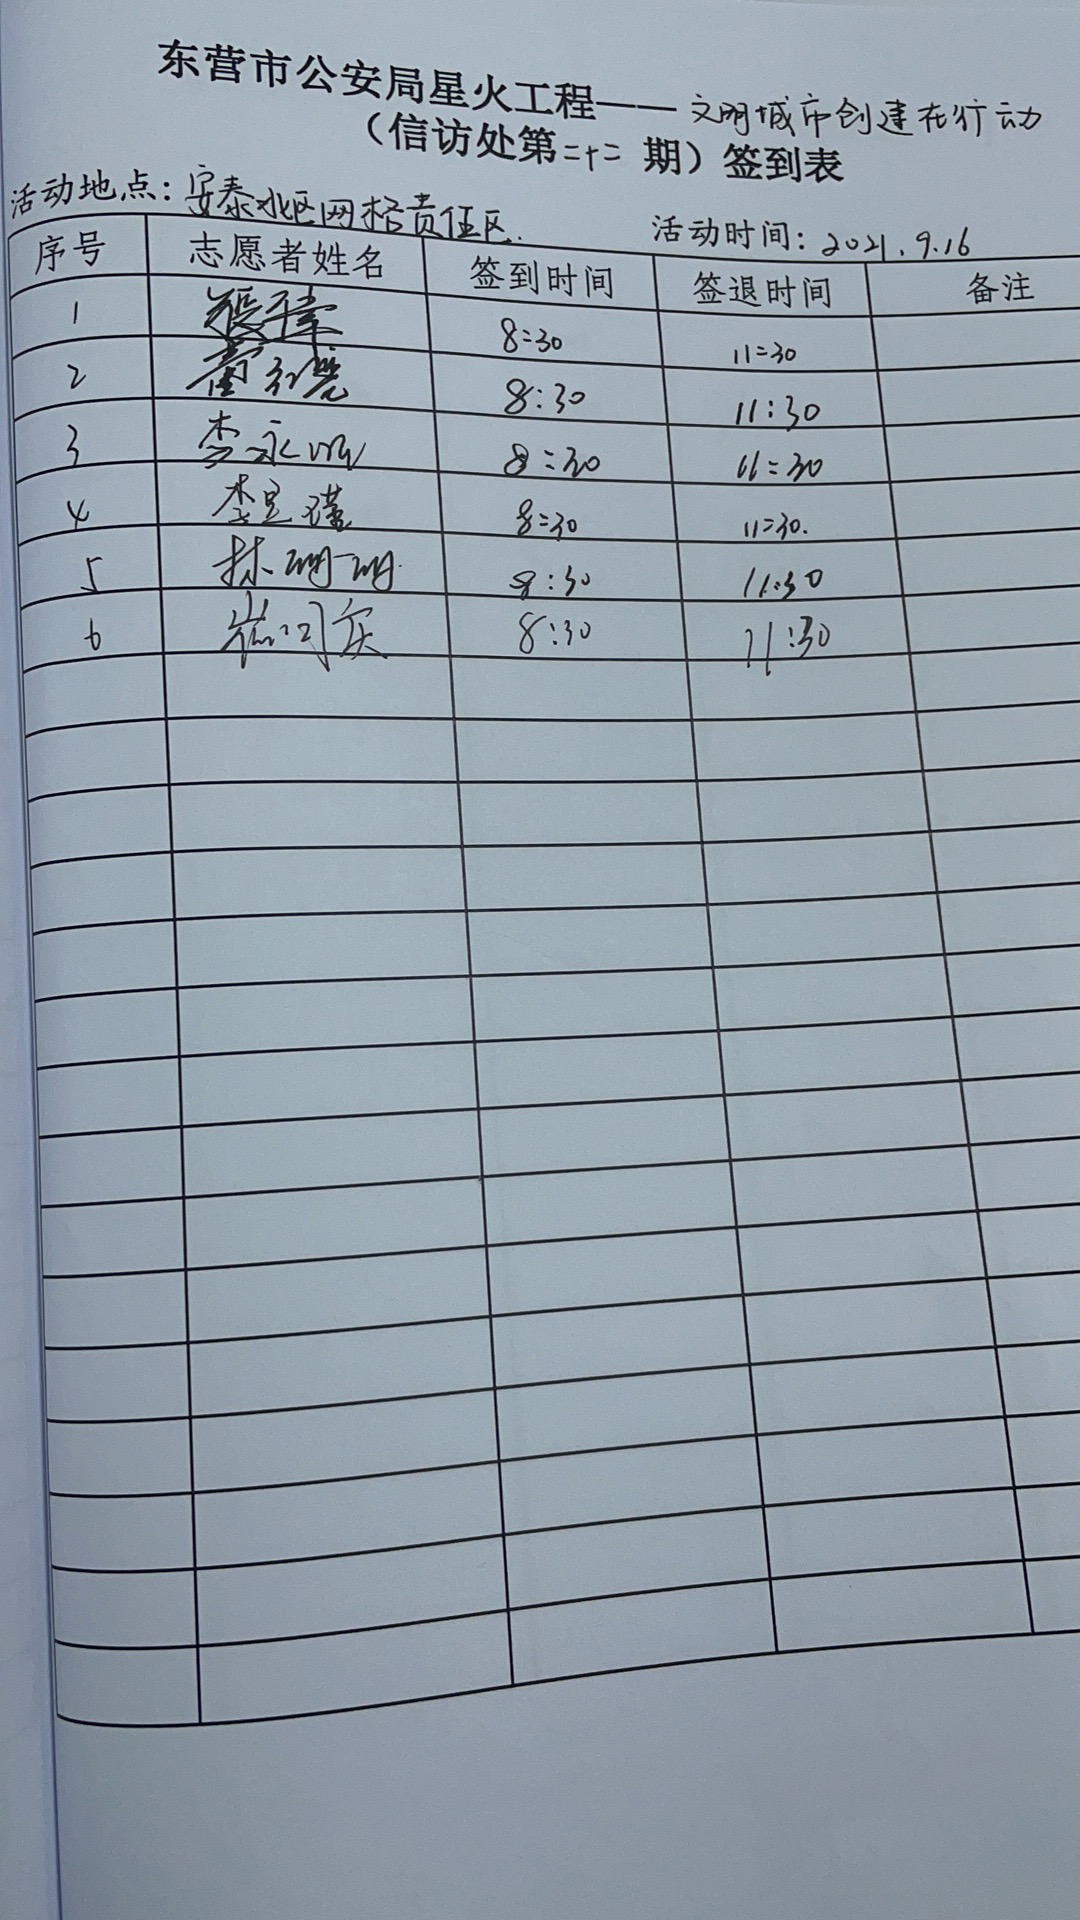 东营市公安局星火工程——文明城市创建在行动
（信访处第二十二期）签到表
活动地点：安泰北区网格责任区. 活动时间：2021.9.16
序号 志愿者姓名 签到时间 签退时间 备注
1 8:30 11:30
2 8:30 11:30
3 李永 8:30 11:30
4 李 8:30 11:30.
5 林珊珊 8:30 11:30
6 崔 8:30 11:30